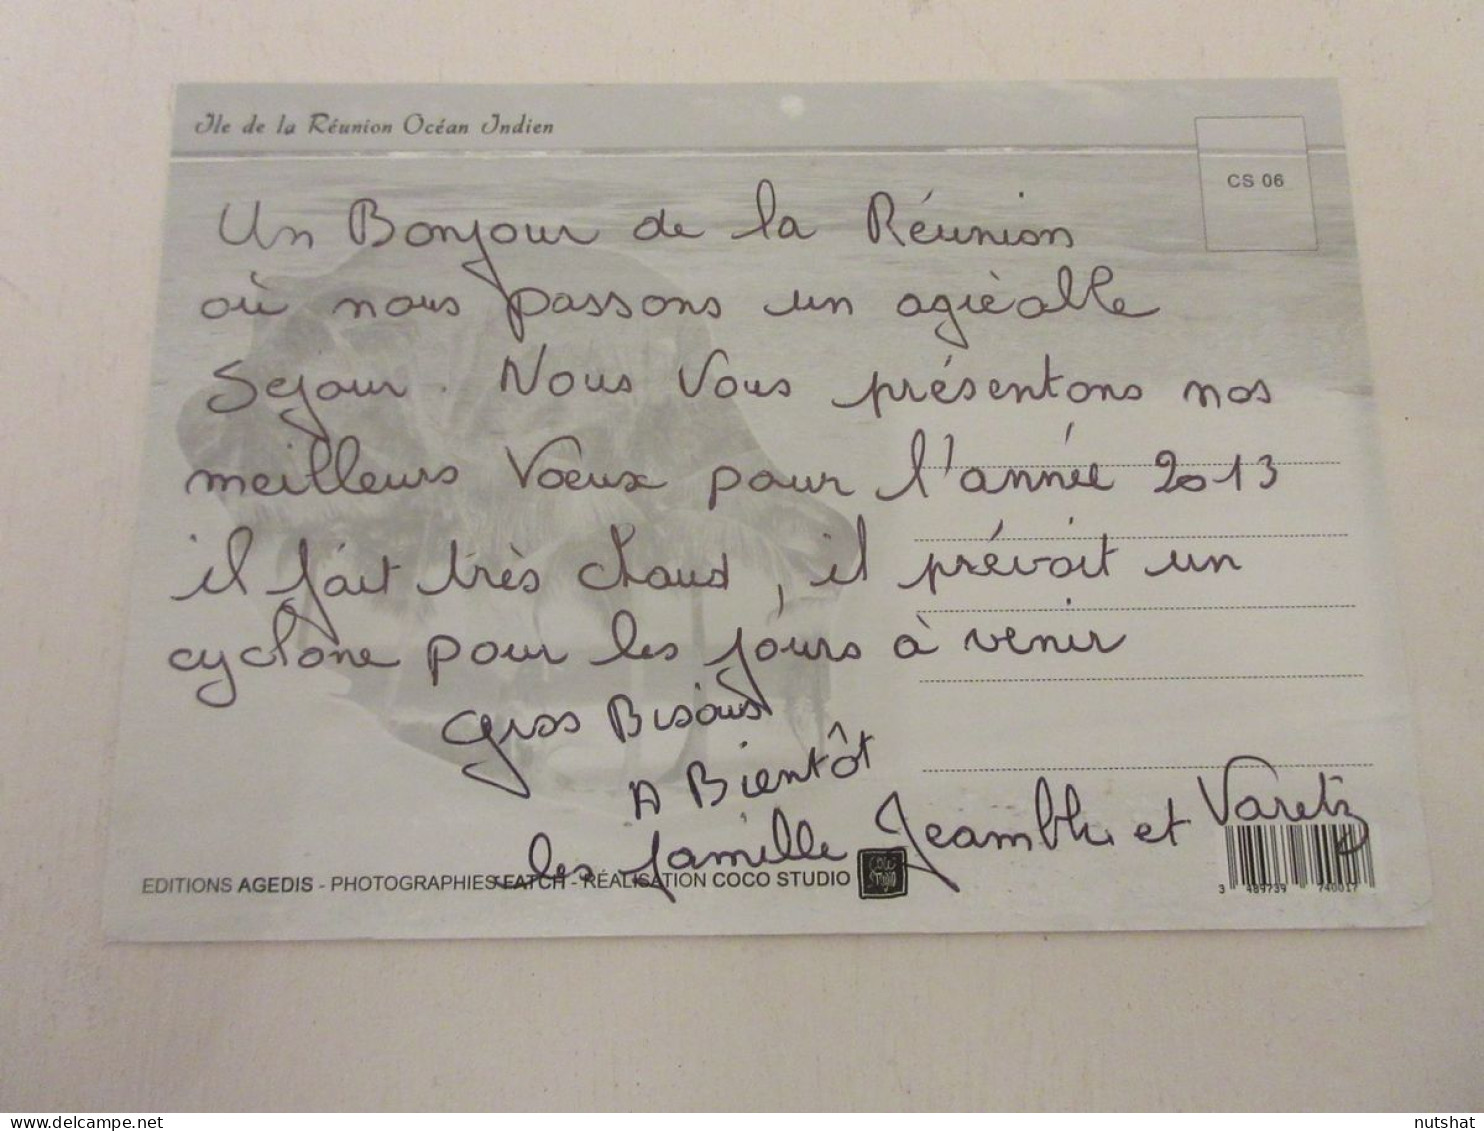 Ile de la Réunion Océan Indien
CS 06
Un Bonjour de la Réunion
où nous passons un agréable
Sejour. Nous Vous présentons nos
meilleurs Vœux pour l'année 2013
il fait très chaud, il prévoit un
cyclone pour les jours à venir
gros Bisous
A Bientôt
les famille et Varetz
EDITIONS AGEDIS - PHOTOGRAPHIES FATCH - RÉALISATION COCO STUDIO
3 489739 740017
delcampe.net
nutshat